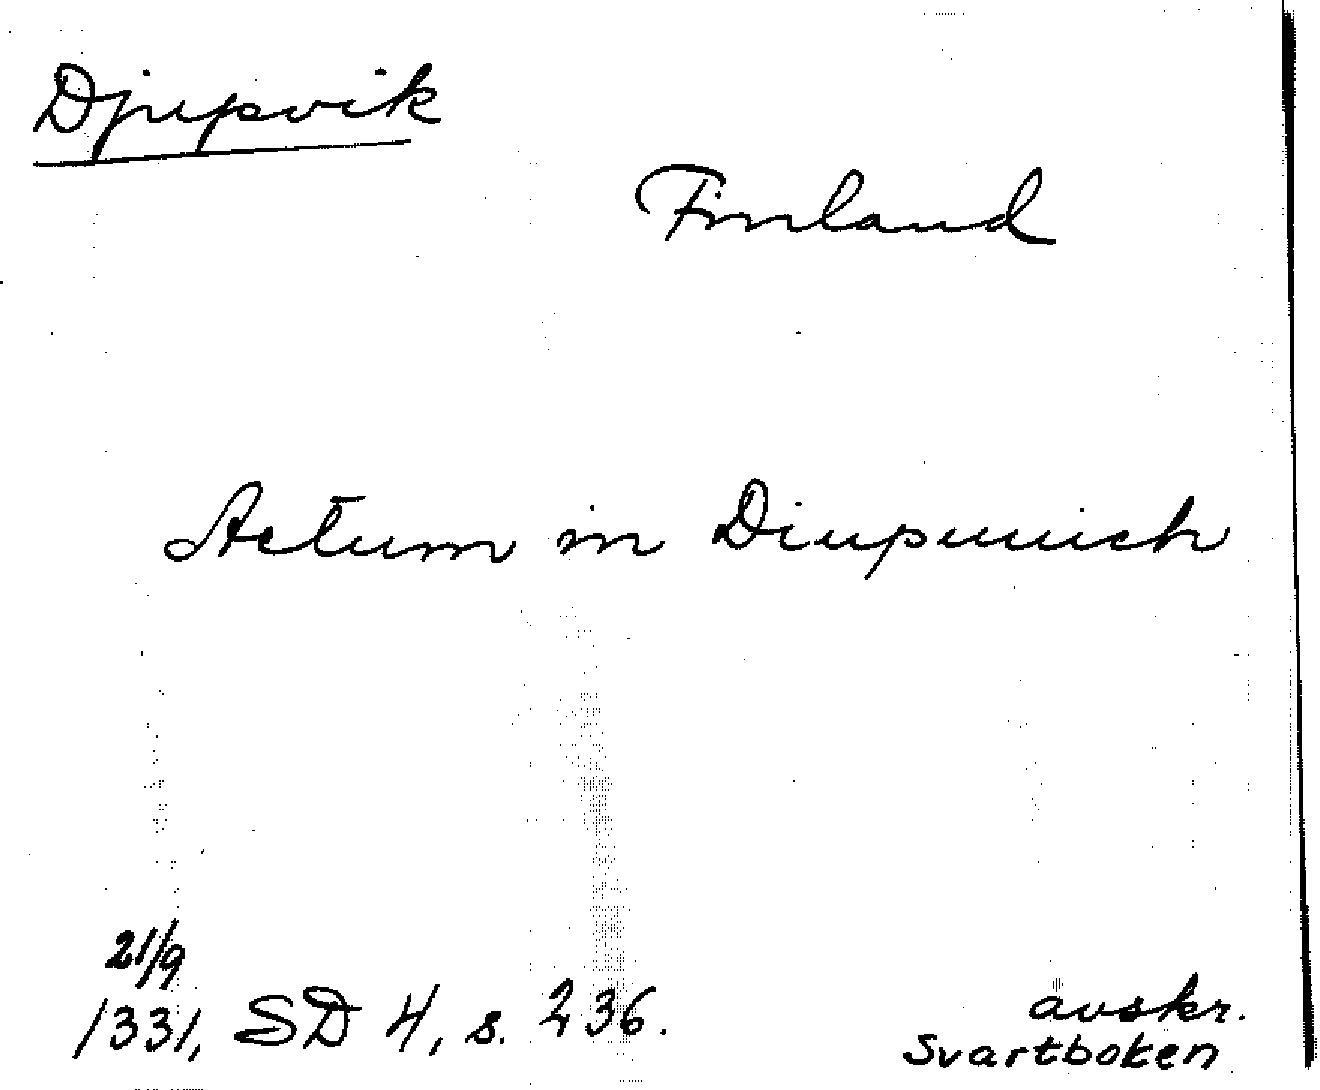 Djupsvik
Finland
Actum in Diupuuich
21/9
1331, SD 4, s. 236.
avskr.
Svartboken